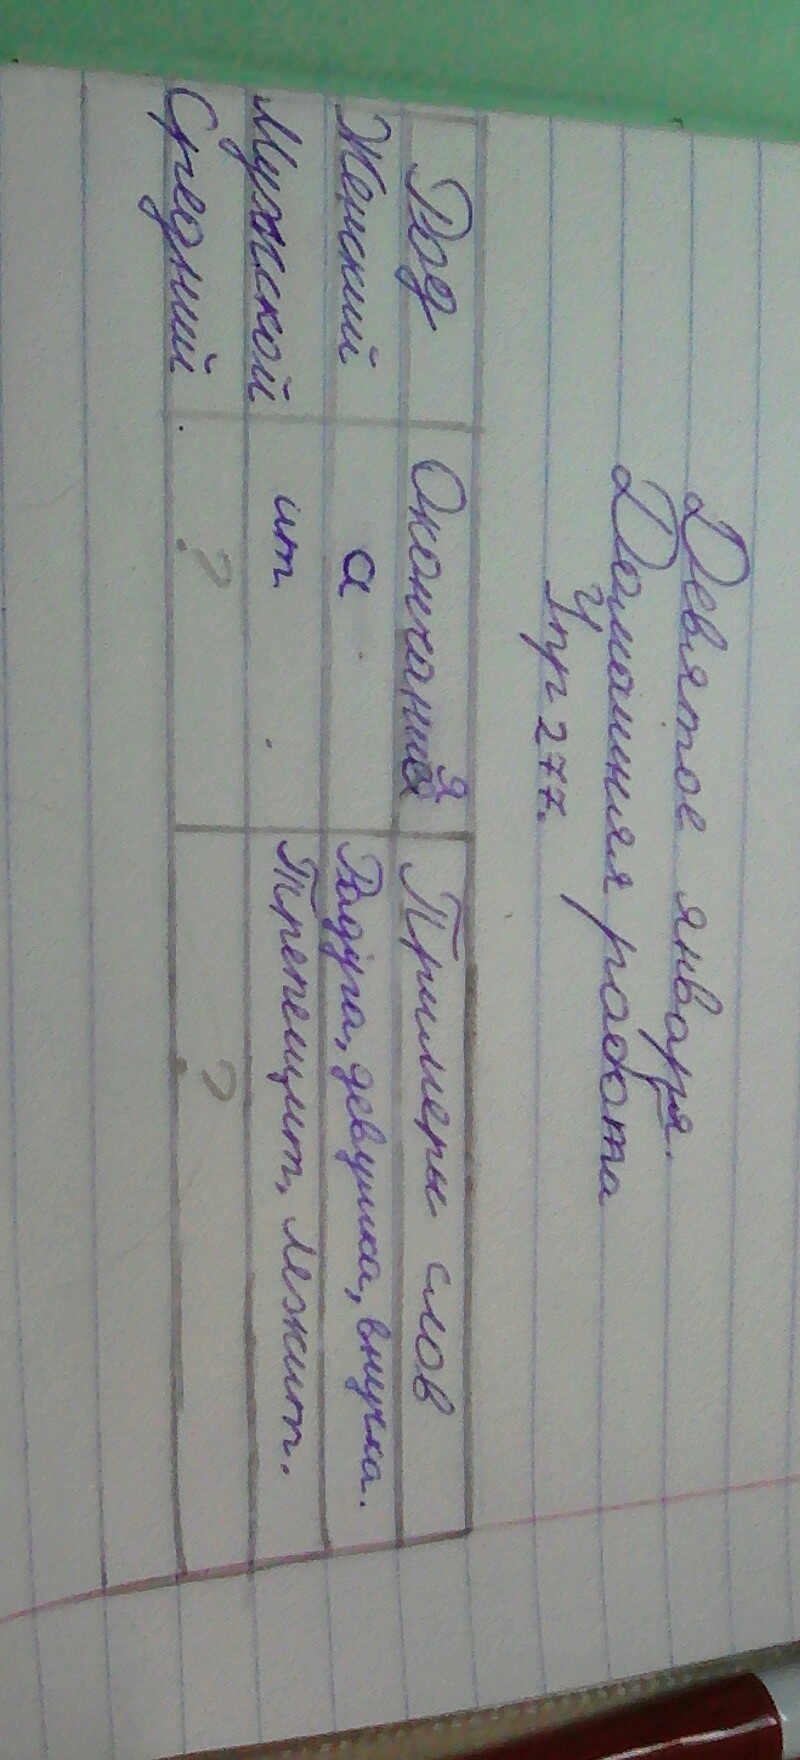 Девятое января.
Домашняя работа
Упр 277.
Род Окончания Примеры слов
Женский а Радуга, девушка, внучка.
Мужской ит Трепещит, лежит.
Средний ? ?